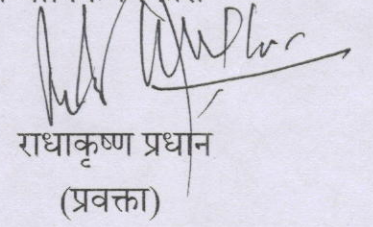 राधाकृष्ण प्रधान
(प्रवक्ता)